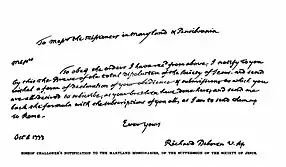 To Messrs the Missioners in Maryland & Pensilvania
Messrs
To obey the orders I have recd from above, I notify to you
by this the Breve of the total dissolution of the Society of Jesus, and send
withal a form of declaration of your obedience & submission to which you
are all desired to subscribe, as your brethren have done here; and send me
back the formula with the subscriptions of you all, as I am to send them up
to Rome.
Ever yours
Oct 6 1773
Richard Deboren V. Ap.
BISHOP CHALLONER'S NOTIFICATION TO THE MARYLAND MISSIONARIES, OF THE SUPPRESSION OF THE SOCIETY OF JESUS.